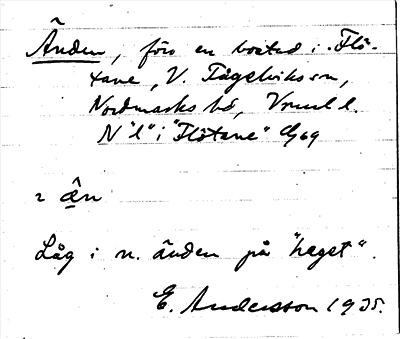 Änden, förs en bostad i Flö-
tane, V. Fågelviks sn,
Nordmarks hd, Vrml l.
N "l" i "Flötane" Gg 69
2 ä̂n
Låg i n. änden på "heget".
E. Andersson 1935.